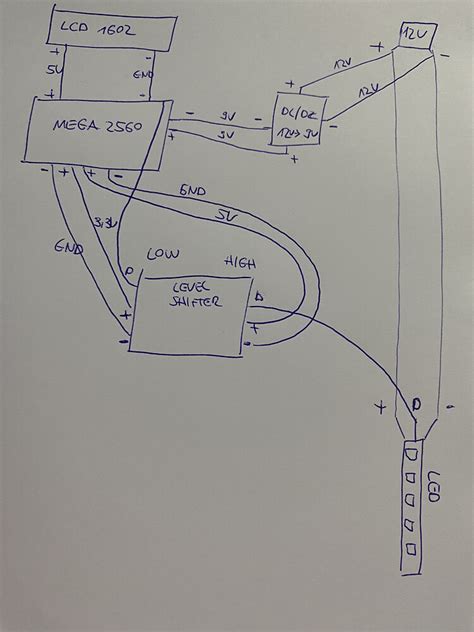 LCD 1602
12V
+ -
+ -
5V
GND
12V
12V
+ -
MEGA 2560
- 9V -
+ 9V +
+ -
DC/DC
12V→9V
- + + -
GND
5V
3,3V
GND
LOW
HIGH
D
D
LEVEL
SHIFTER
+ +
- -
+ D -
LED